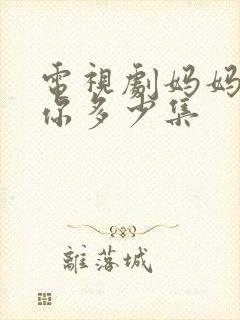 電視劇妈妈
你多少集
離落城